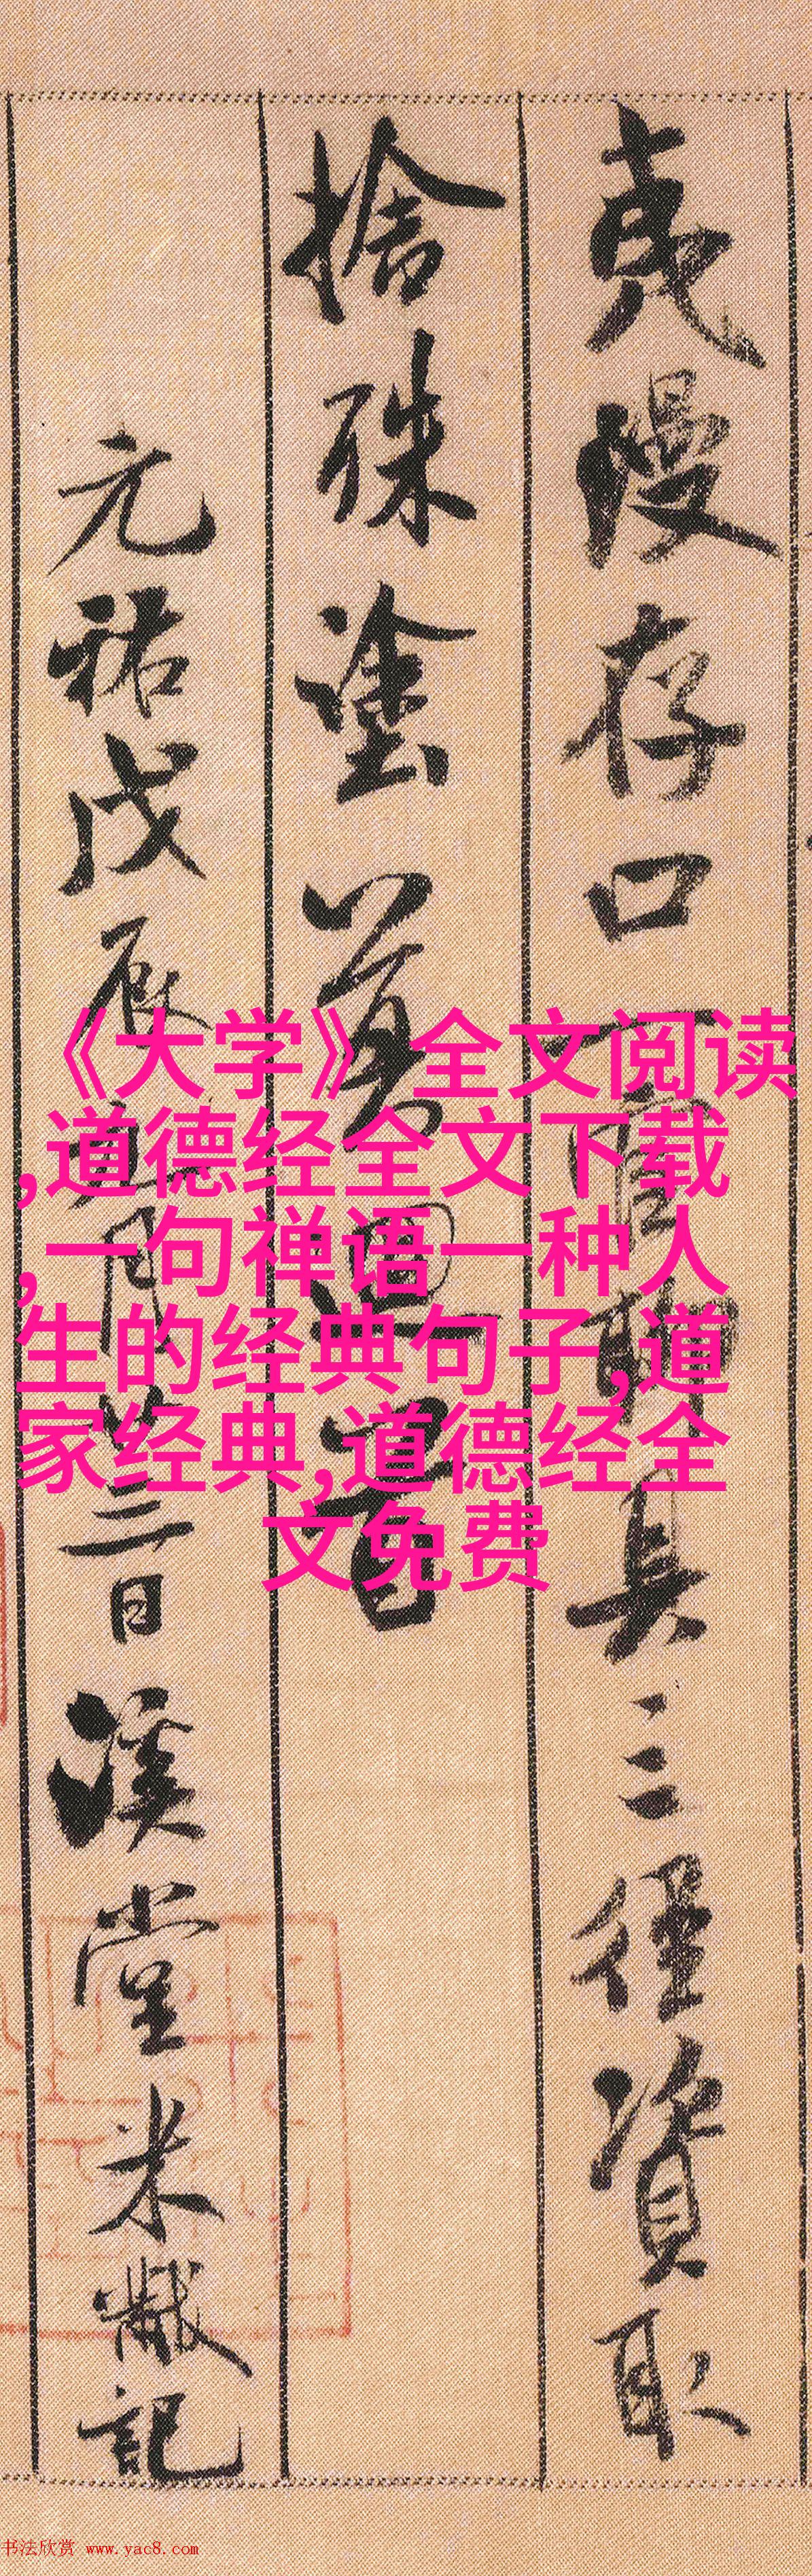 夷漫存口一官聊具三徑資取
捨殊塗莫迴首
元祐戊辰九月廿三日溪堂米黻記
《大学》全文阅读
,道德经全文下载
,一句禅语一种人
生的经典句子,道
家经典,道德经全
文免费
书法欣赏 www.yac8.com